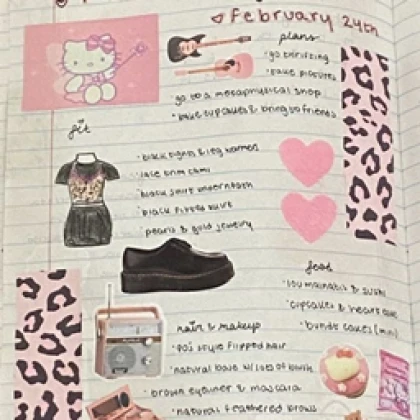 February 24th
plans
·go thrifting
·take pictures
go to a metaphysical shop
·bake cupcakes & bring to friends
fit
·black tights & leg warmers
·lace trim cami
·black shirt underneath
·black pleated skirt
·pearls & gold jewelry
food
& sushi
·cupcakes & heart cake
·bundt cakes (mini)
hair & makeup
·90s style flipped hair
·natural base w/ lots of blush
·brown eyeliner & mascara
·natural feathered brows